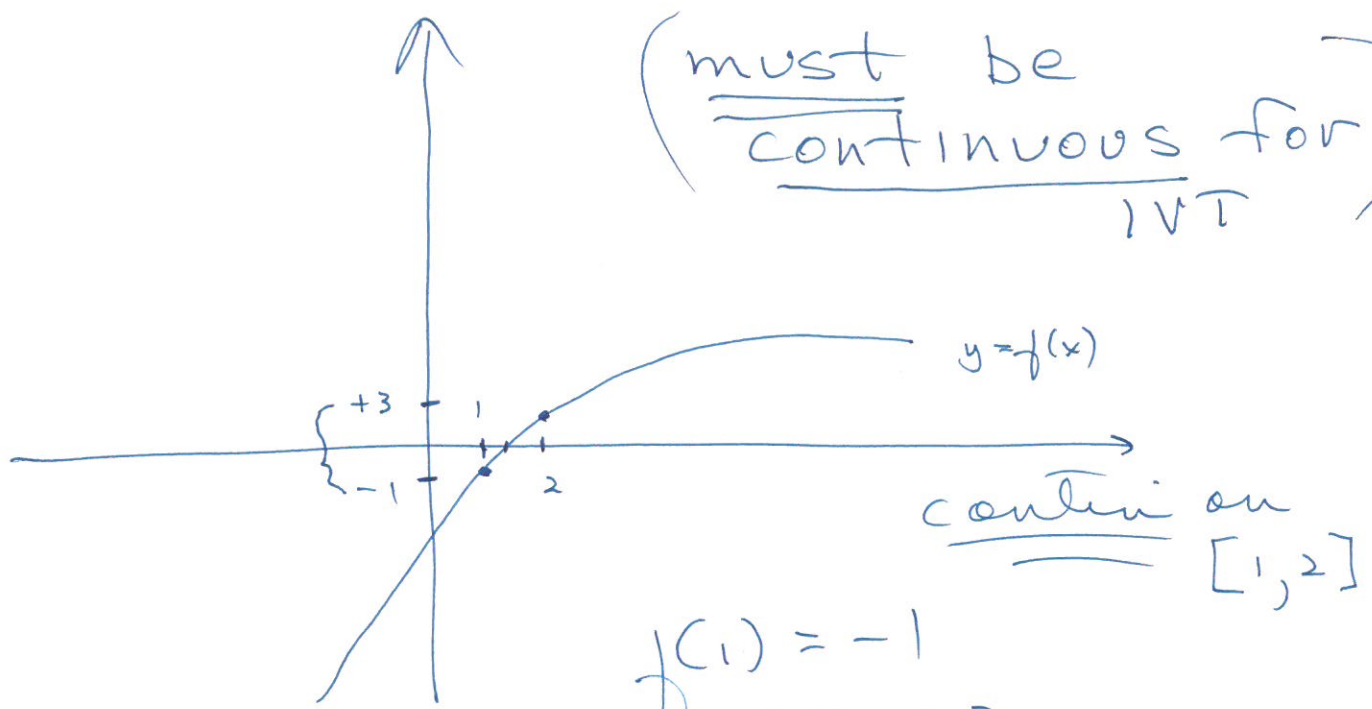 (must be
continuous for
IVT
y=f(x)
+3 1
-1 2
contin on
[1,2]
f(1) = -1